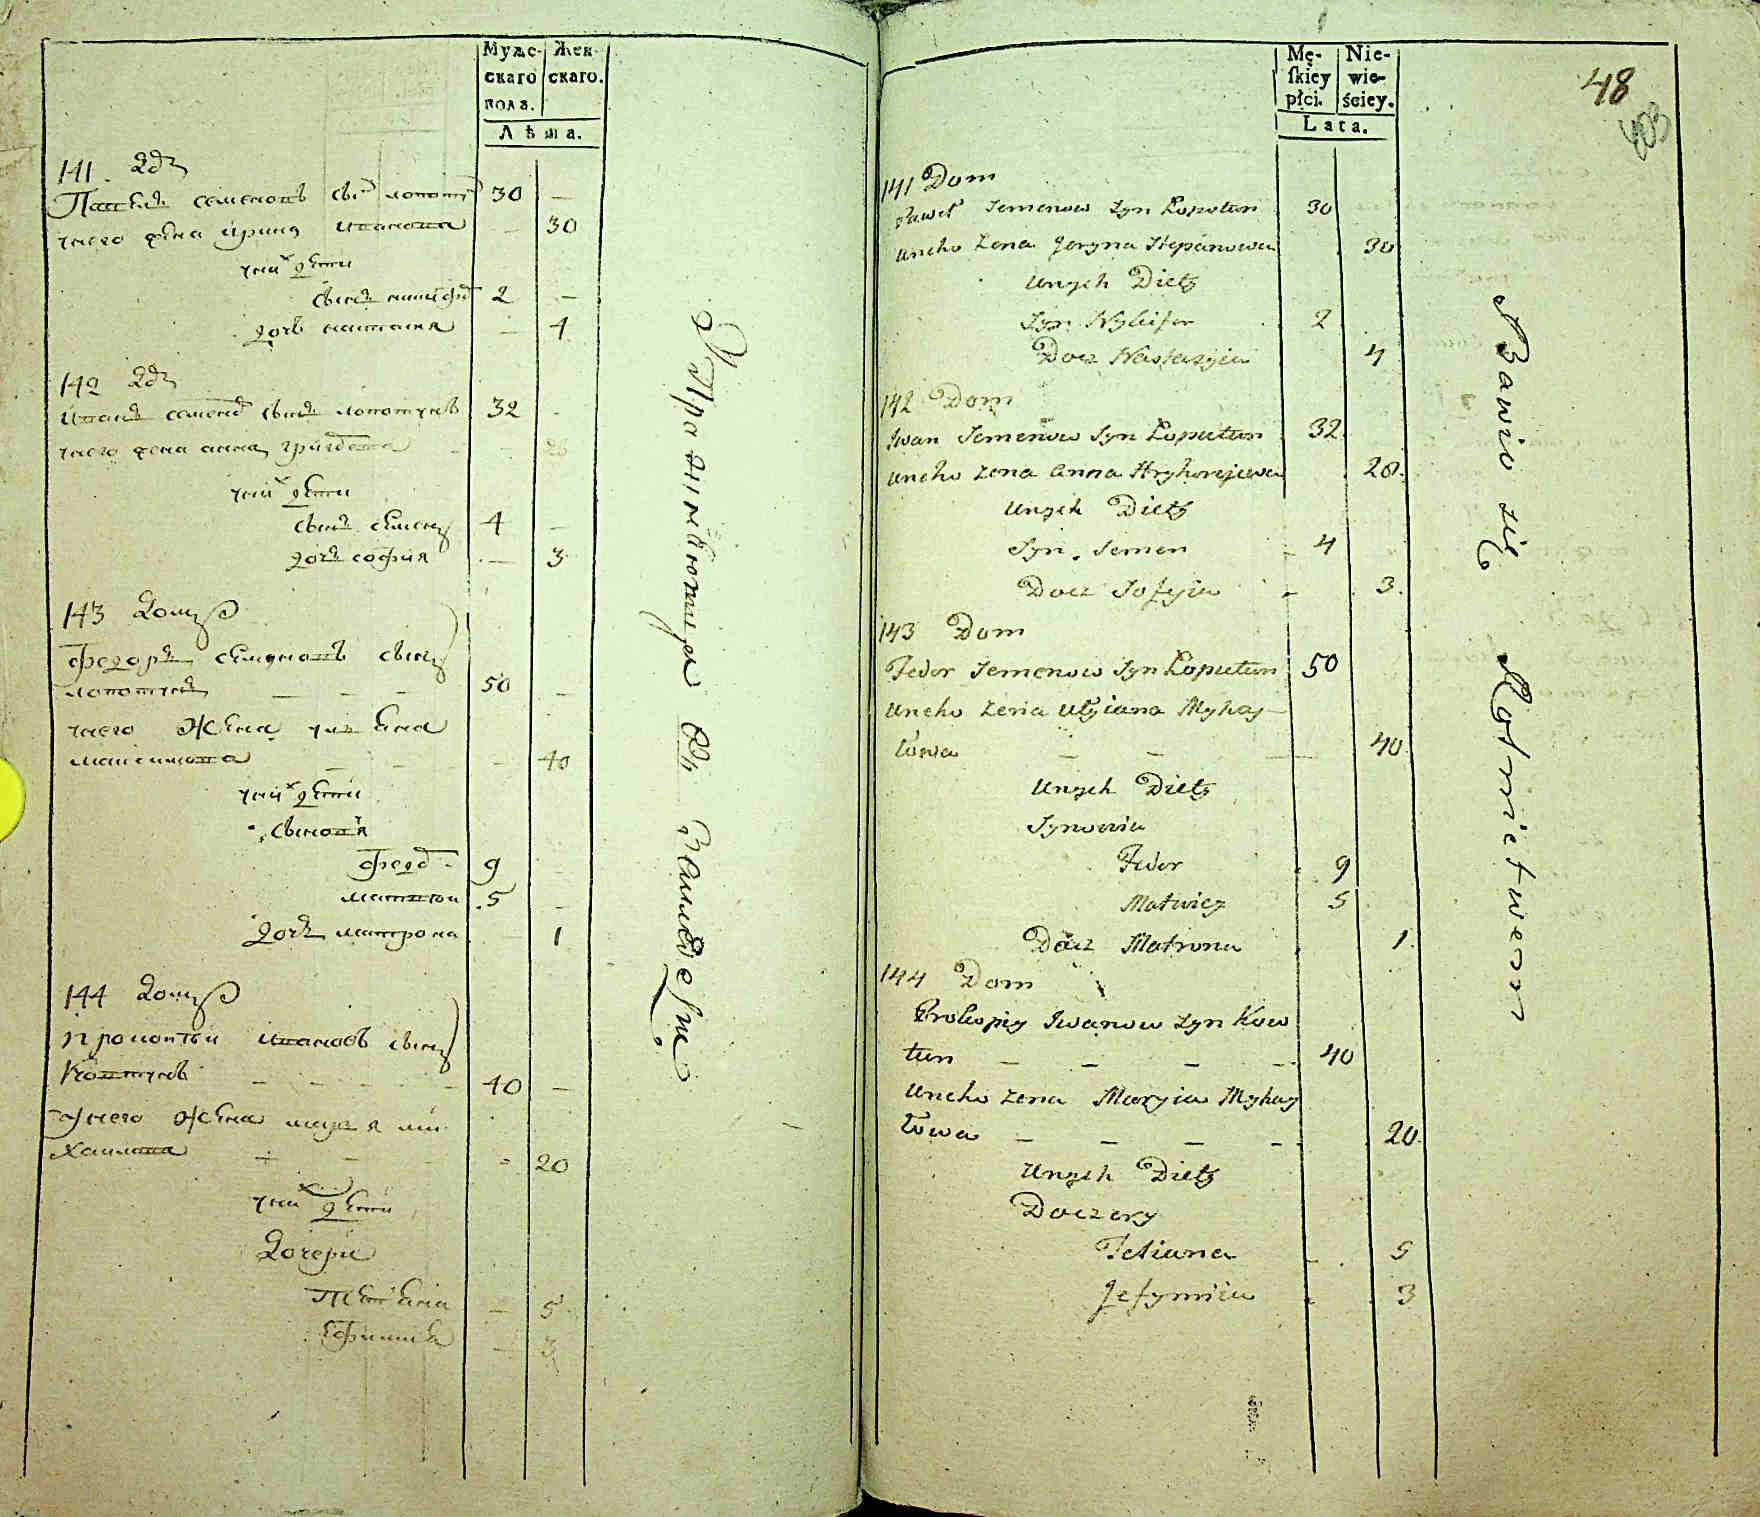 Мужс- Жен-
скаго скаго.
пола.
Лѣта.
141. Дом
Павел семенов сын лопоту 30 —
унего жена ирина — 30
уних дети
сын никифор 2 —
дочь настасия — 4
142 Дом
иван семенов сын лопотунъ 32
унего жена анна григорева
уних дети
сынъ семенъ 4 —
дочь софия — 3
143 Домъ
Федоръ семеновъ сынъ
лопотунъ — — — 50 —
унего жена улияна
— — — 40
уних дети
сыновя
Федор 9
матвеи 5 —
дочь матрона — 1
144 Домъ
прокопеи ивановъ сынъ
Ковтунъ — — — — — 40 —
Унего жена мария ми
хаилова — — 20
уних дети
Дочери
Тетяна — 5
Ефимия — 3
Упражняются въ Земледелие
Mę- Nie-
skiey wie-
płci. ściey.
Lata.
48
403
141 Dom
Paweł Semenow Syn Łopotun 30
uneho Zena Jeryna Stepanowa 30
unych Diety
Syn Nykifor 2
Docz Nastazyia 4
142 Dom
Iwan Semenow Syn Łoputun 32
uneho zena Anna Hryhorejewa 20.
unych Diety
Syn Semen — 4
Docz Sofyia — 3.
143 Dom
Fedor Semenow Syn Łoputun 50
uneho zena Ulyiana Myhay-
łowa — — — 40
unych Diety
Synowia
Fedor 9
Matwiey 5
Docz Matrona 1.
144 Dom
Prokopiy Iwanow Syn Kow
tun — — — — 40
uneho zena Maryia Myhay
łowa — — — — 20.
unych Diety
Doczery
Tetiana 5
Jefymiia 3
Bawio się Rolnictwem